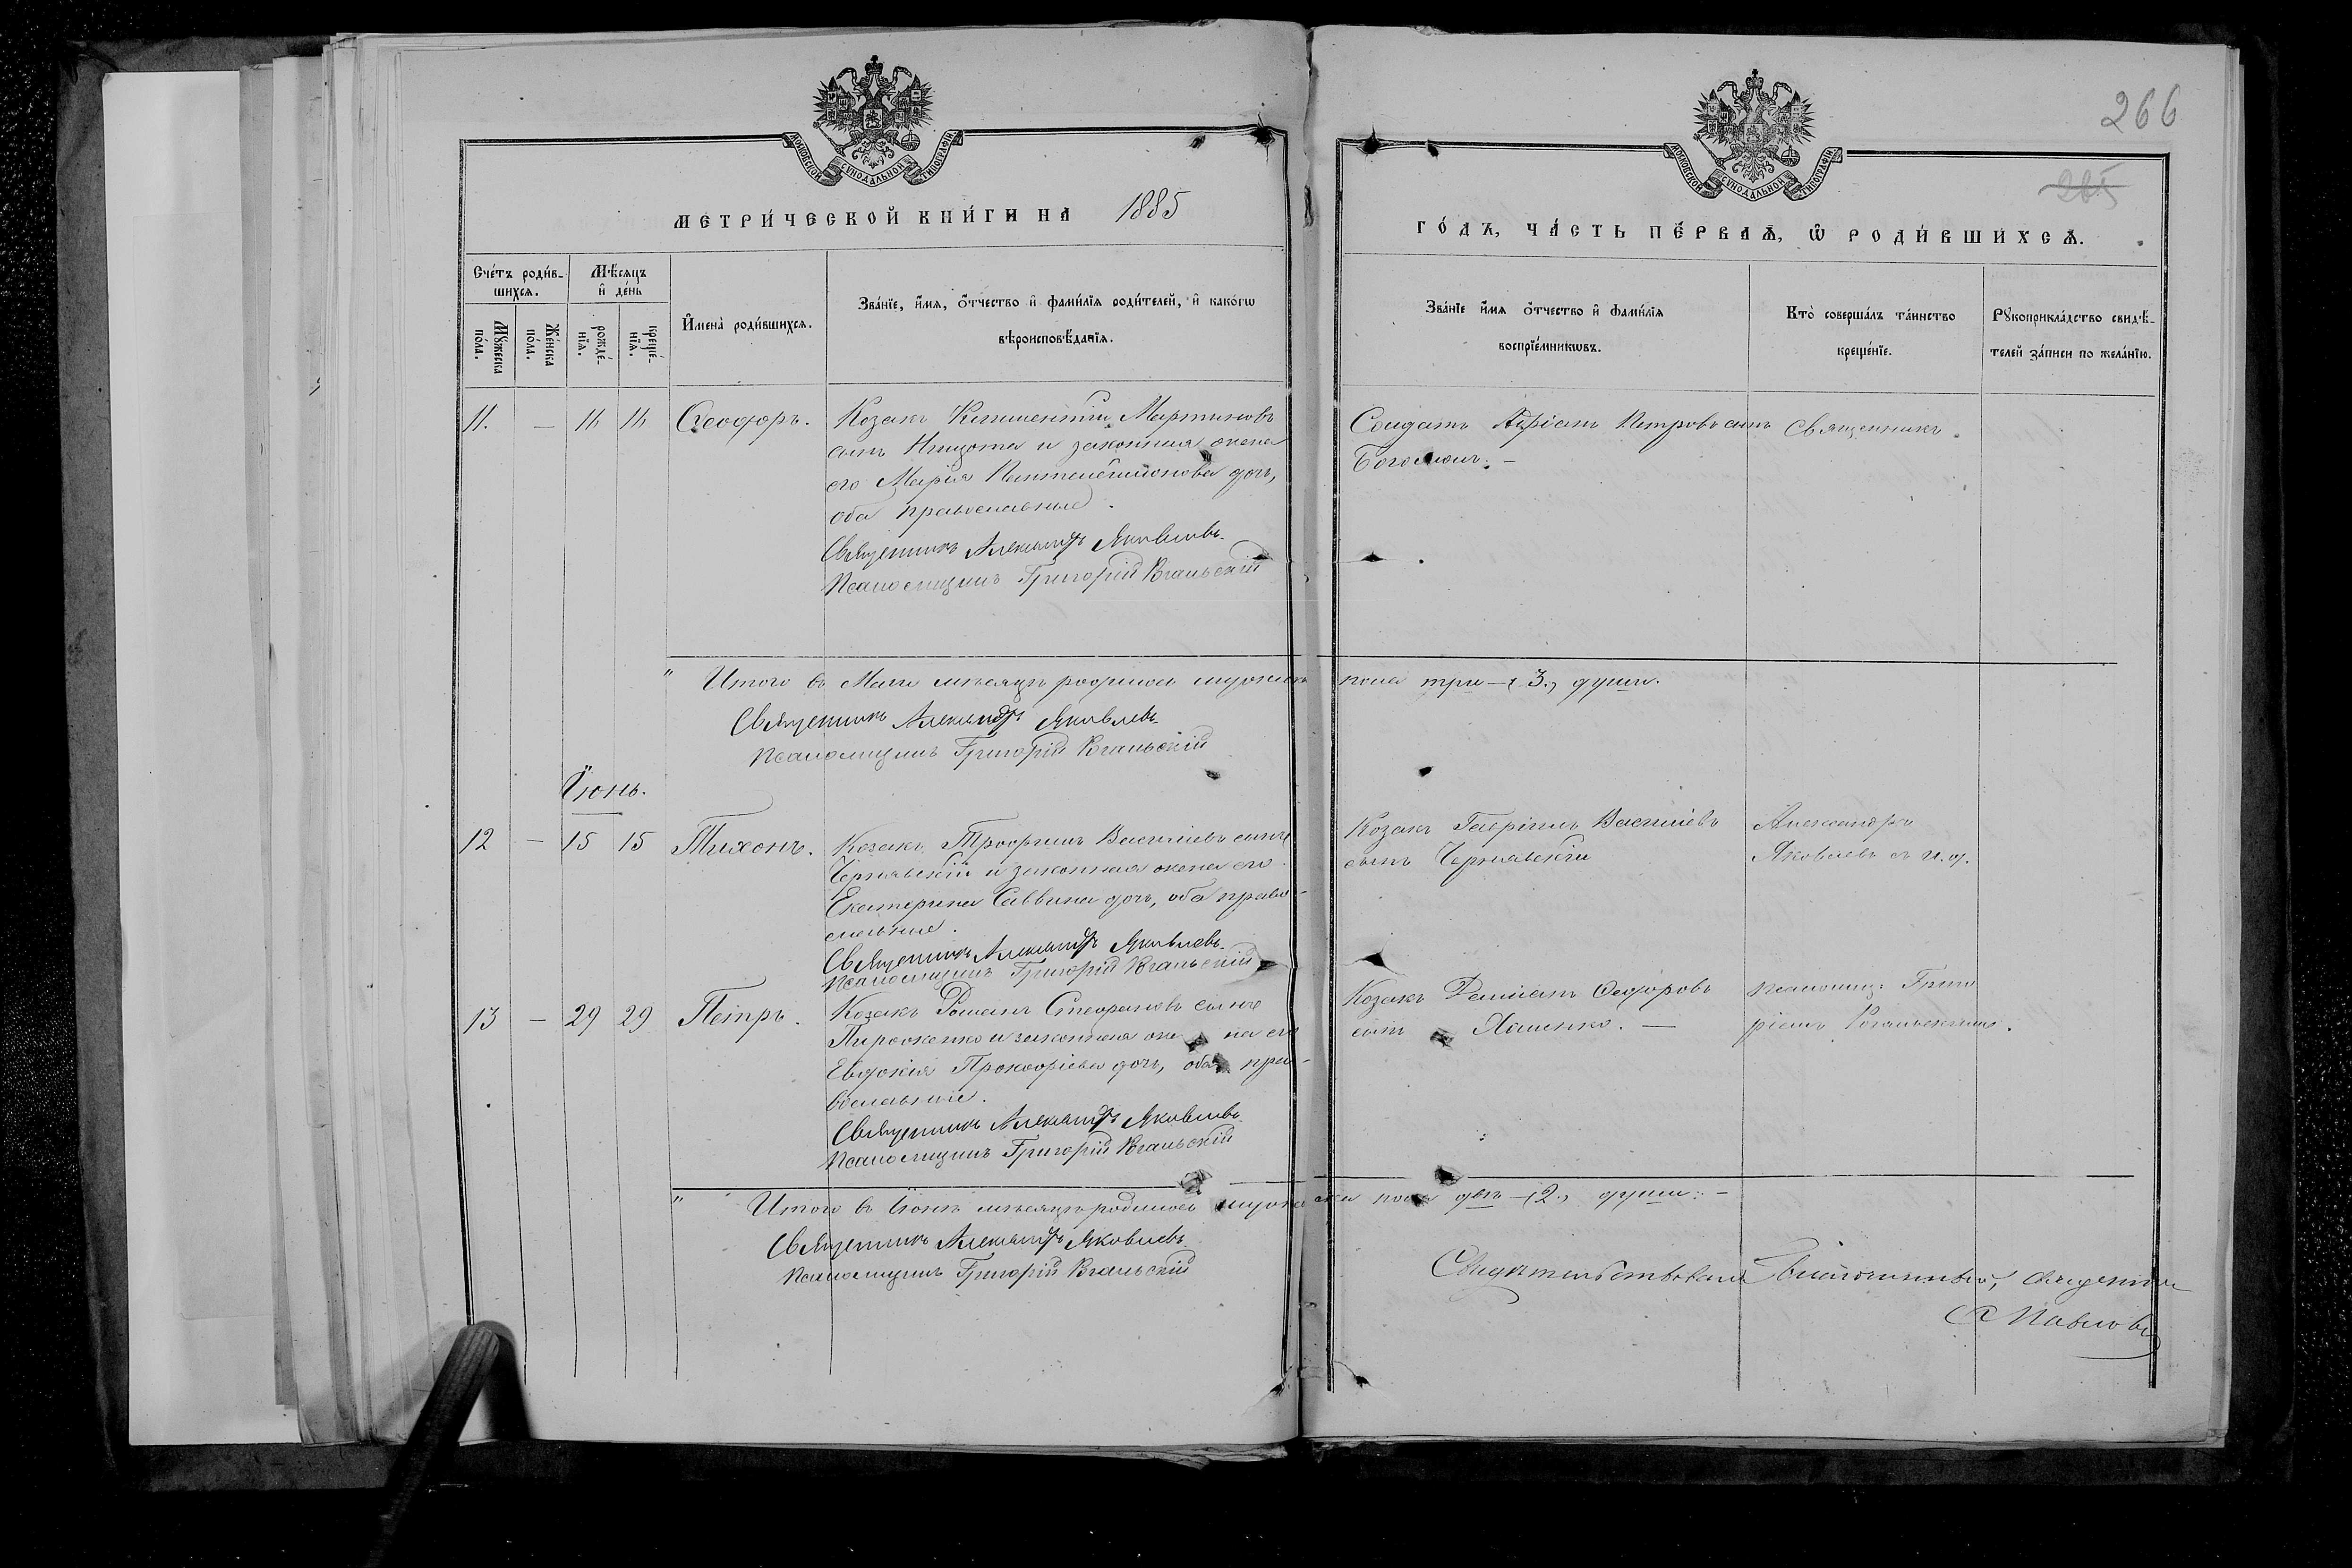 266
МОСКОВСКОЙ СУНОДАЛЬНОЙ ТИПОГРАФІИ
МОСКОВСКОЙ СУНОДАЛЬНОЙ ТИПОГРАФІИ
МЕТРИ́ЧЕСКОЙ КНИ́ГИ НА 1885
ГО́ДЪ, ЧА́СТЬ ПЕ́РВАѦ, Ѡ҆ РОДИ́ВШИХСѦ.
Сче́тъ роди́в-
шихсѧ.
Мѣ́сѧцъ
и҆ де́нь
Мꙋ́жеска
по́ла.
Же́нска
по́ла.
рожде́-
нїѧ.
креще́-
нїѧ.
И҆мена̀ роди́вшихсѧ.
Зва́нїе, и҆́мѧ, ѻ҆́тчество и҆ фами́лїѧ роди́телей, и҆ како́гѡ
вѣроисповѣ́данїѧ.
Зва́нїе и҆́мѧ ѻ҆́тчество и҆ фами́лїѧ
воспрїе́мникѡвъ.
Кто̀ соверша́лъ та́инство
креще́нїе.
Рꙋкоприкла́дство свидѣ́-
телей за́писи по жела́нїю.
11. — Ѳеодоръ.
Козакъ Климентій Мартиновъ
сынъ и законная жена
его Марія Пантелеимонова дочь,
оба православные.
Священникъ Александръ Яковлевъ.
Псаломщикъ Григорій
Солдатъ Петровъ сынъ
Богомолъ. —
Священникъ
" Итого въ Маѣ мѣсяцѣ родилось мужеска пола три — (3.) души.
Священникъ Александръ Яковлевъ.
Псаломщикъ Григорій
Іюнь.
12 — 15 15 Тихонъ.
Козакъ Трофимъ Василіевъ сынъ
Чернявскій и законная жена его
Екатерина Саввина дочь, оба право-
славные.
Священникъ Александръ Яковлевъ.
Псаломщикъ Григорій
Козакъ Гавріилъ Василіевъ
сынъ Чернявскій
Александръ
Яковлевъ съ п.
13 — 29 29 Петръ.
Козакъ Романъ Стефановъ сынъ
Пироженко и законная жена его
Евдокія Прокофіева дочь, оба пра-
вославные.
Священникъ Александръ Яковлевъ.
Псаломщикъ Григорій
Козакъ Ѳеодоровъ
сынъ
псаломщ: Григо
ріемъ
" Итого въ Іюнѣ мѣсяцѣ родилось мужеска пола двѣ — (2.) души: —
Священникъ Александръ Яковлевъ.
Псаломщикъ Григорій
Свидѣтельствовалъ Благочинный, священникъ
Павловъ